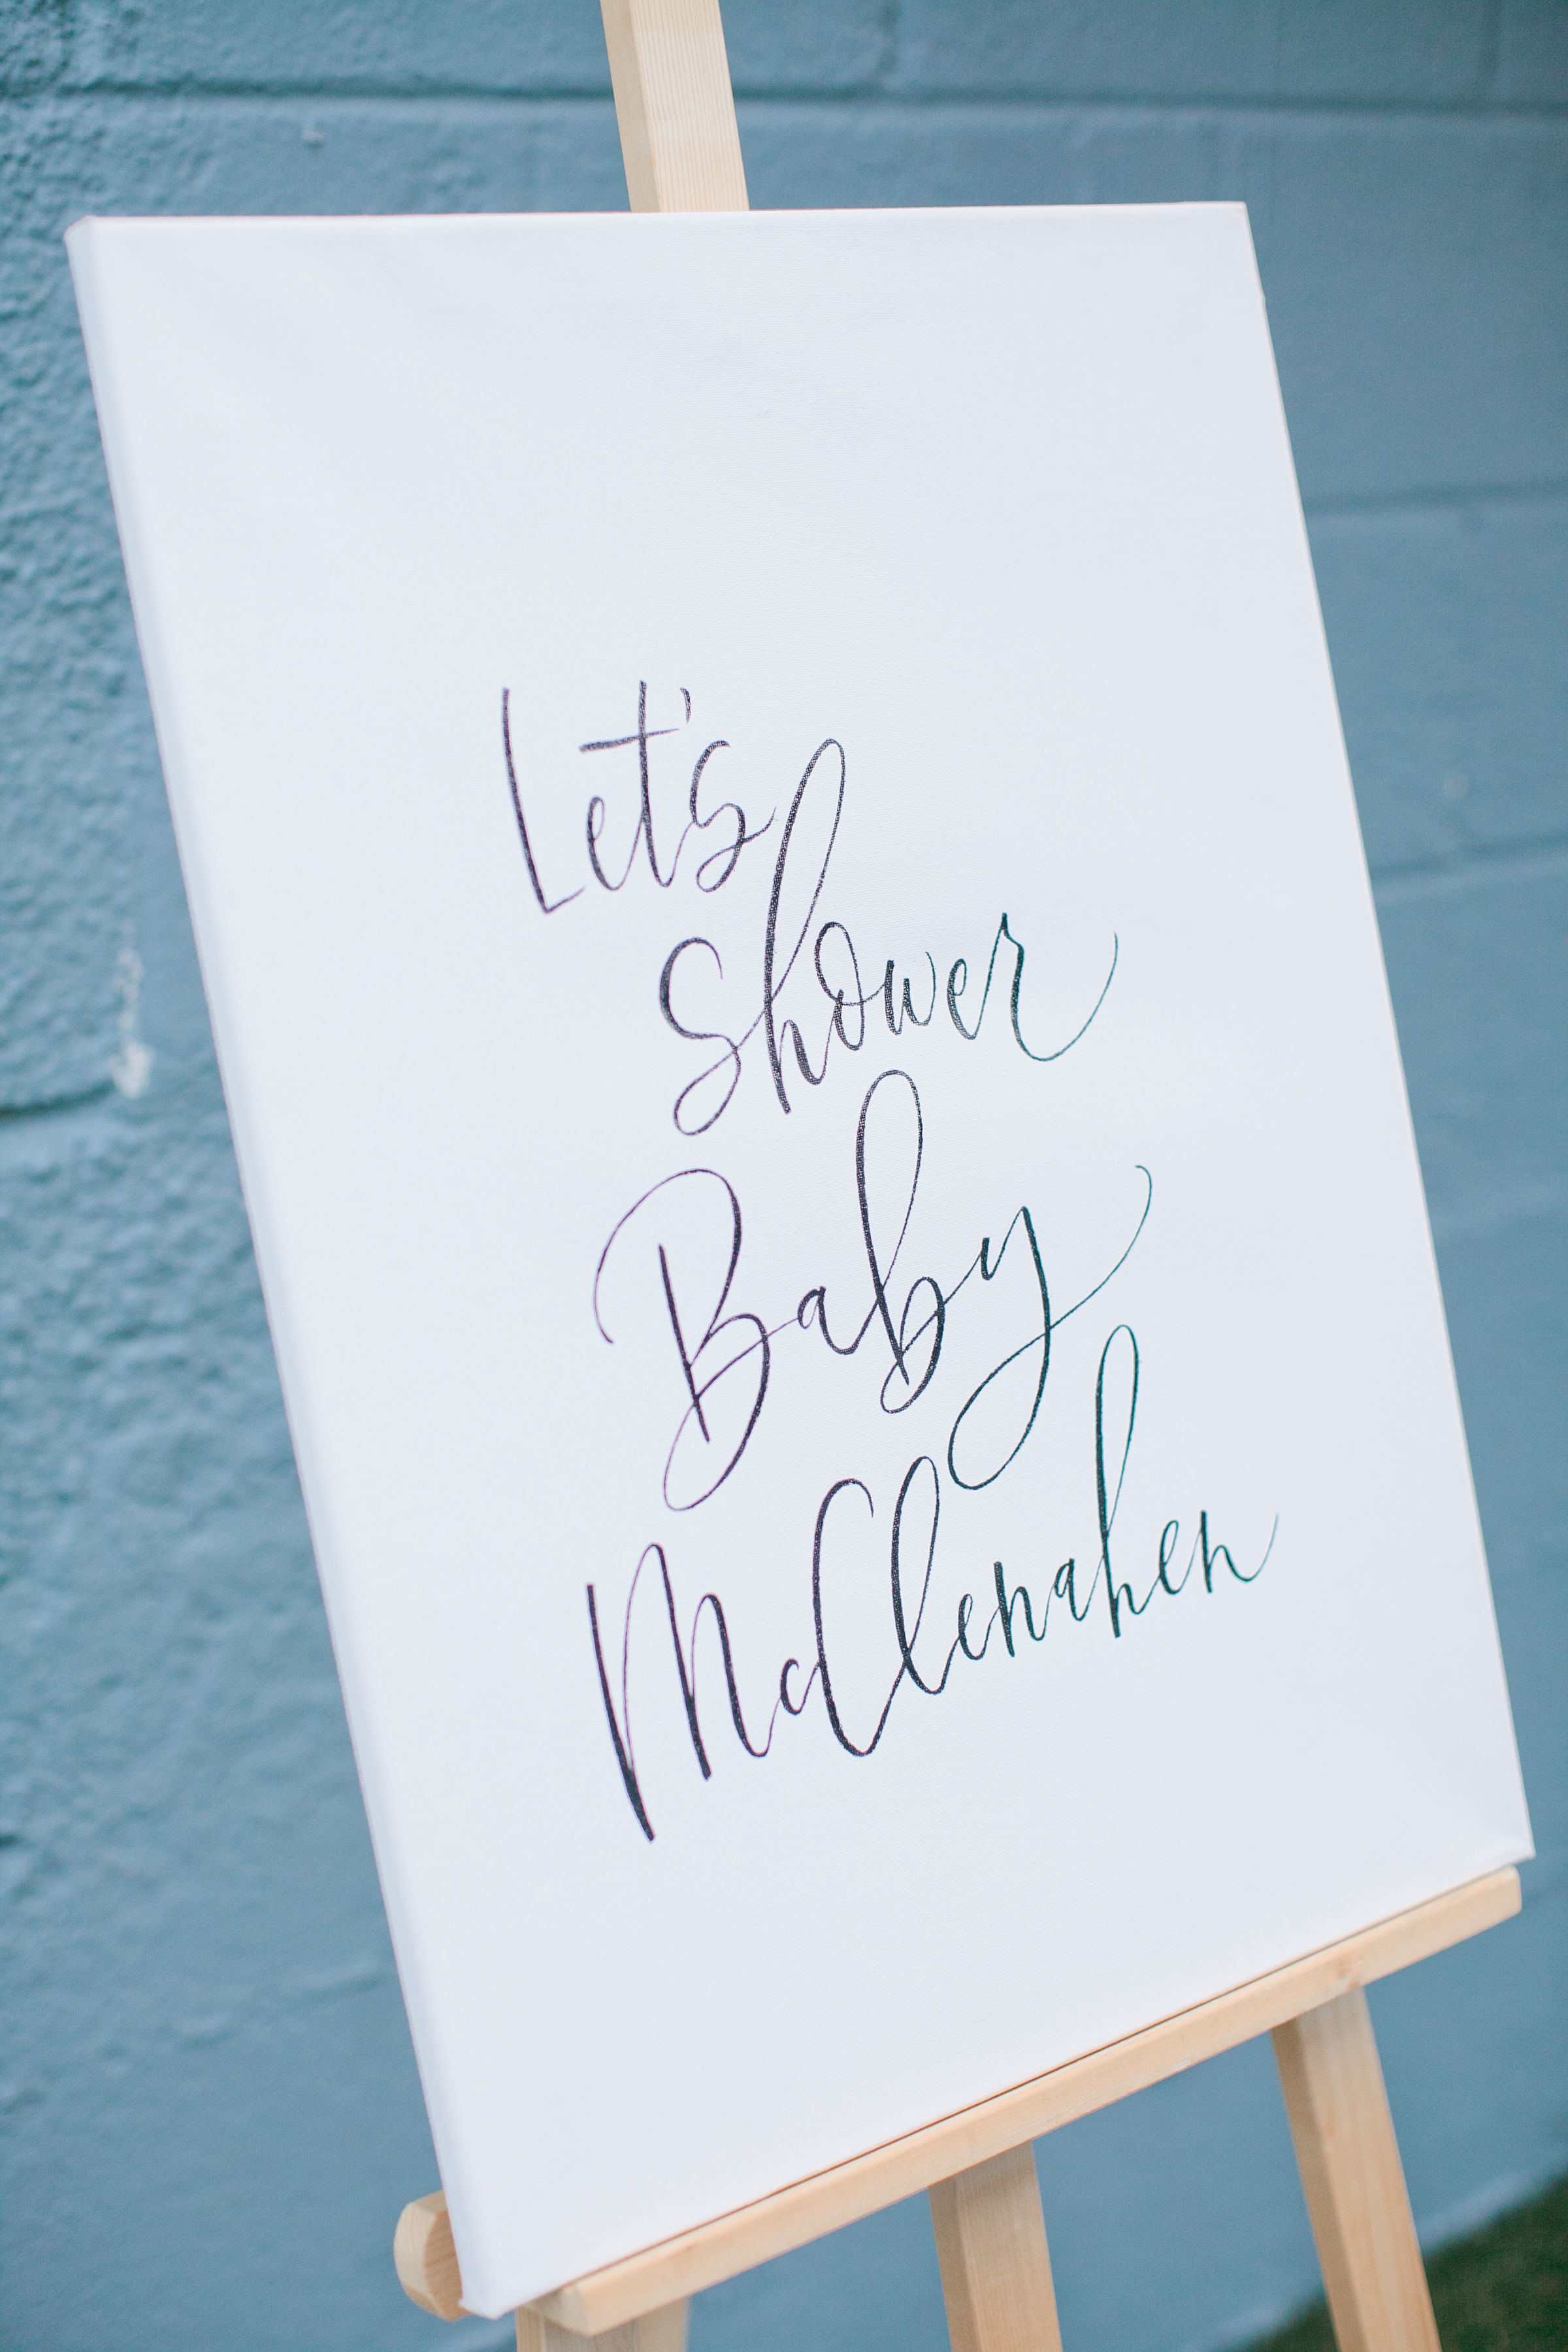 Let's
Shower
Baby
McClenahen